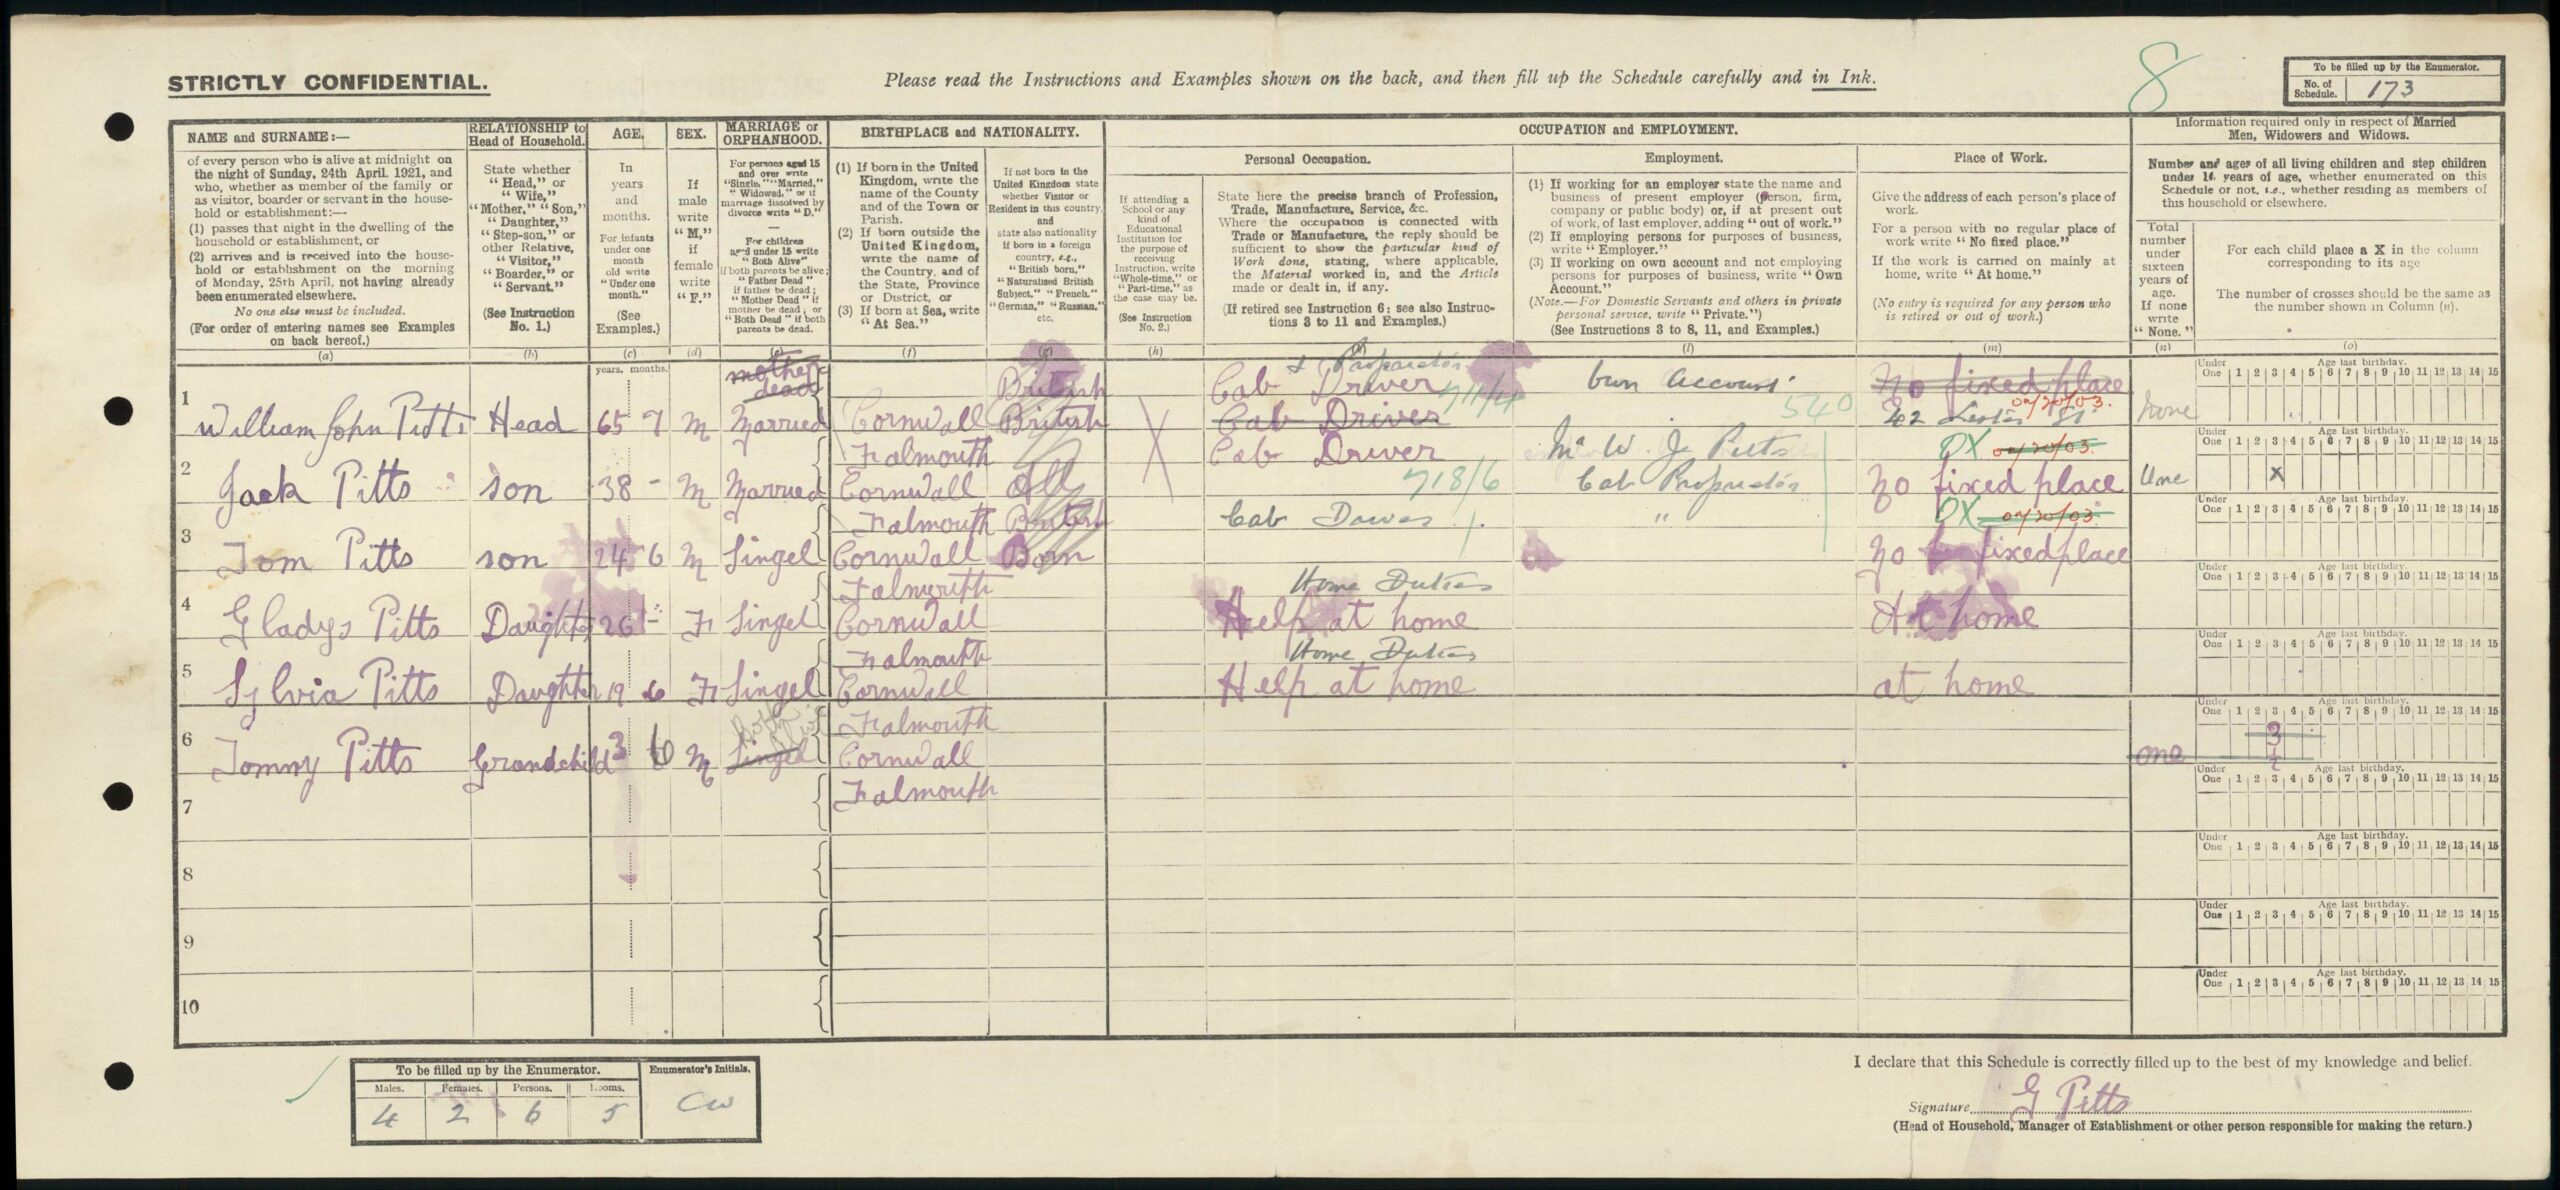 STRICTLY CONFIDENTIAL.
Please read the Instructions and Examples shown on the back, and then fill up the Schedule carefully and in Ink.
8
To be filled up by the Enumerator.
No. of Schedule. 173
NAME and SURNAME:—
of every person who is alive at midnight on
the night of Sunday, 24th April, 1921, and
who, whether as member of the family or
as visitor, boarder or servant in the house-
hold or establishment:—
(1) passes that night in the dwelling of the
household or establishment, or
(2) arrives and is received into the house-
hold or establishment on the morning
of Monday, 25th April, not having already
been enumerated elsewhere.
No one else must be included.
(For order of entering names see Examples
on back hereof.)
(a)
RELATIONSHIP to
Head of Household.
State whether
"Head," or
"Wife,"
"Mother," "Son,"
"Daughter,"
"Step-son," or
other Relative,
"Visitor,"
"Boarder," or
"Servant."
(See Instruction
No. 1.)
(b)
AGE.
In
years
and
months.
For infants
under one
month
old write
"Under one
month."
(See
Examples.)
(c)
SEX.
If
male
write
"M,"
if
female
write
"F."
(d)
MARRIAGE or
ORPHANHOOD.
For persons aged 15
and over write
"Single," "Married,"
"Widowed," or if
marriage dissolved by
divorce write "D."
For children
aged under 15 write
"Both Alive"
if both parents be alive;
"Father Dead"
if father be dead;
"Mother Dead" if
mother be dead; or
"Both Dead" if both
parents be dead.
(e)
BIRTHPLACE and NATIONALITY.
(1) If born in the United
Kingdom, write the
name of the County
and of the Town or
Parish.
(2) If born outside the
United Kingdom,
write the name of
the Country, and of
the State, Province
or District, or
(3) If born at Sea, write
"At Sea."
(f)
If not born in the
United Kingdom state
whether Visitor or
Resident in this country,
and
state also nationality
if born in a foreign
country, e.g.,
"British born,"
"Naturalised British
Subject," "French,"
"German," "Russian,"
etc.
(g)
OCCUPATION and EMPLOYMENT.
If attending a
School or any
kind of
Educational
Institution for
the purpose of
receiving
Instruction, write
"Whole-time," or
"Part-time," as
the case may be.
(See Instruction
No. 2.)
(h)
Personal Occupation.
State here the precise branch of Profession,
Trade, Manufacture, Service, &c.
Where the occupation is connected with
Trade or Manufacture, the reply should be
sufficient to show the particular kind of
Work done, stating, where applicable,
the Material worked in, and the Article
made or dealt in, if any.
(If retired see Instruction 6; see also Instruc-
tions 3 to 11 and Examples.)
Employment.
(1) If working for an employer state the name and
business of present employer (person, firm,
company or public body) or, if at present out
of work, of last employer, adding "out of work."
(2) If employing persons for purposes of business,
write "Employer."
(3) If working on own account and not employing
persons for purposes of business, write "Own
Account."
(Note.—For Domestic Servants and others in private
personal service, write "Private.")
(See Instructions 3 to 8, 11, and Examples.)
(l)
Place of Work.
Give the address of each person's place of
work.
For a person with no regular place of
work write "No fixed place."
If the work is carried on mainly at
home, write "At home."
(No entry is required for any person who
is retired or out of work.)
(m)
Information required only in respect of Married
Men, Widowers and Widows.
Number and ages of all living children and step children
under 16 years of age, whether enumerated on this
Schedule or not, i.e., whether residing as members of
this household or elsewhere.
Total
number
under
sixteen
years of
age.
If none
write
"None."
(n)
For each child place a X in the column
corresponding to its age
The number of crosses should be the same as
the number shown in Column (n).
(o)
years. months.
Under One Age last birthday. 1 2 3 4 5 6 7 8 9 10 11 12 13 14 15
mother dead
British
& Proprietor
Cab Driver 711/4
Own Account
540
No fixed place
1 William John Pitts Head 65 7 M Married Cornwall British Cab Driver 42 St None
Falmouth
2 Jack Pitts son 38 - M Married Cornwall All Cab Driver 718/6 Mr W. J. Pitts Cab Proprietor OX No fixed place One X
Falmouth British
3 Tom Pitts son 24 6 M Singel Cornwall Born Cab " OX No fixed place
Falmouth
Home Duties
4 Gladys Pitts Daughter 26 - F Singel Cornwall Help at home At home
Falmouth
Home Duties
5 Sylvia Pitts Daughter 19 6 F Singel Cornwall Help at home at home
Falmouth
Both Alive
6 Tommy Pitts Grandchild 3 6 M Singel Cornwall one 3 1/2
Falmouth
7
8
9
10
To be filled up by the Enumerator.
Males. Females. Persons. Rooms.
4 2 6 5
Enumerator's Initials.
CW
I declare that this Schedule is correctly filled up to the best of my knowledge and belief.
Signature G Pitts
(Head of Household, Manager of Establishment or other person responsible for making the return.)